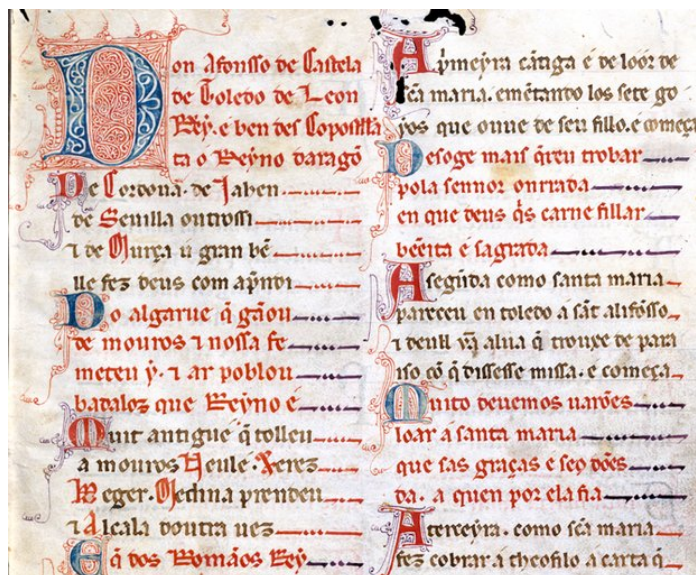 Don Afonsso de Castela
de Toledo de Leon
Rey. e ben des Copostela
ta o Reyno daragõ
De Cordoua. de Jahen
de Seuilla outrossi
⁊ de Murça u gran bẽ
lle fez deus com apndi
Do algarue q̃ gãou
de mouros ⁊ nossa fe
meteu y. ⁊ ar poblou
badalloz que Reyno é
Muit antigue q̃ tolleu
a mouros Neule. Xerez
Beger. Medina prendeu
⁊ Alcala doutra uez
E q̃ dos Romãos Rey
A pmeyra cãtiga é de loor de
sc̃a maria. emẽtando los sete go
yos que ouue de seu fillo. e começa
Desoge mais q̃reu trobar
pola sennor onrrada
en que deus q̃s carne fillar
bẽeita e sagrada
A segũda como santa maria
pareceu en toledo a sãt alifõsso
⁊ deull ũa alua q̃ trouxe de para
iso cõ q̃ dissesse missa. e começa
Muito deuemos uarões
loar a santa maria
que sas graças e seo dões
da. a quen por ela fia
A terceyra. como sc̃a maria
fez cobrar a theofilo a carta q̃